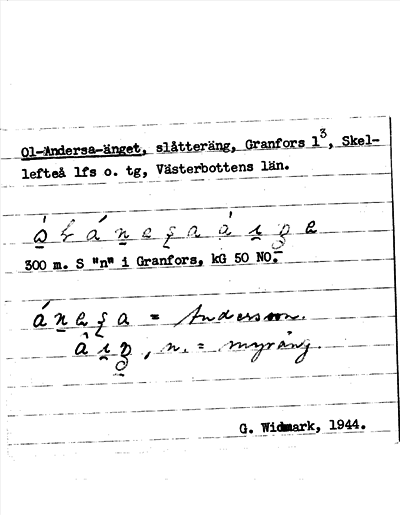 Ol-Andersa-änget, slåtteräng, Granfors 1³, Skel-
lefteå lfs o. tg, Västerbottens län.
300 m. S "n" i Granfors, kG 50 NO.
= Andersson.
, n. = myräng.
G. Widmark, 1944.